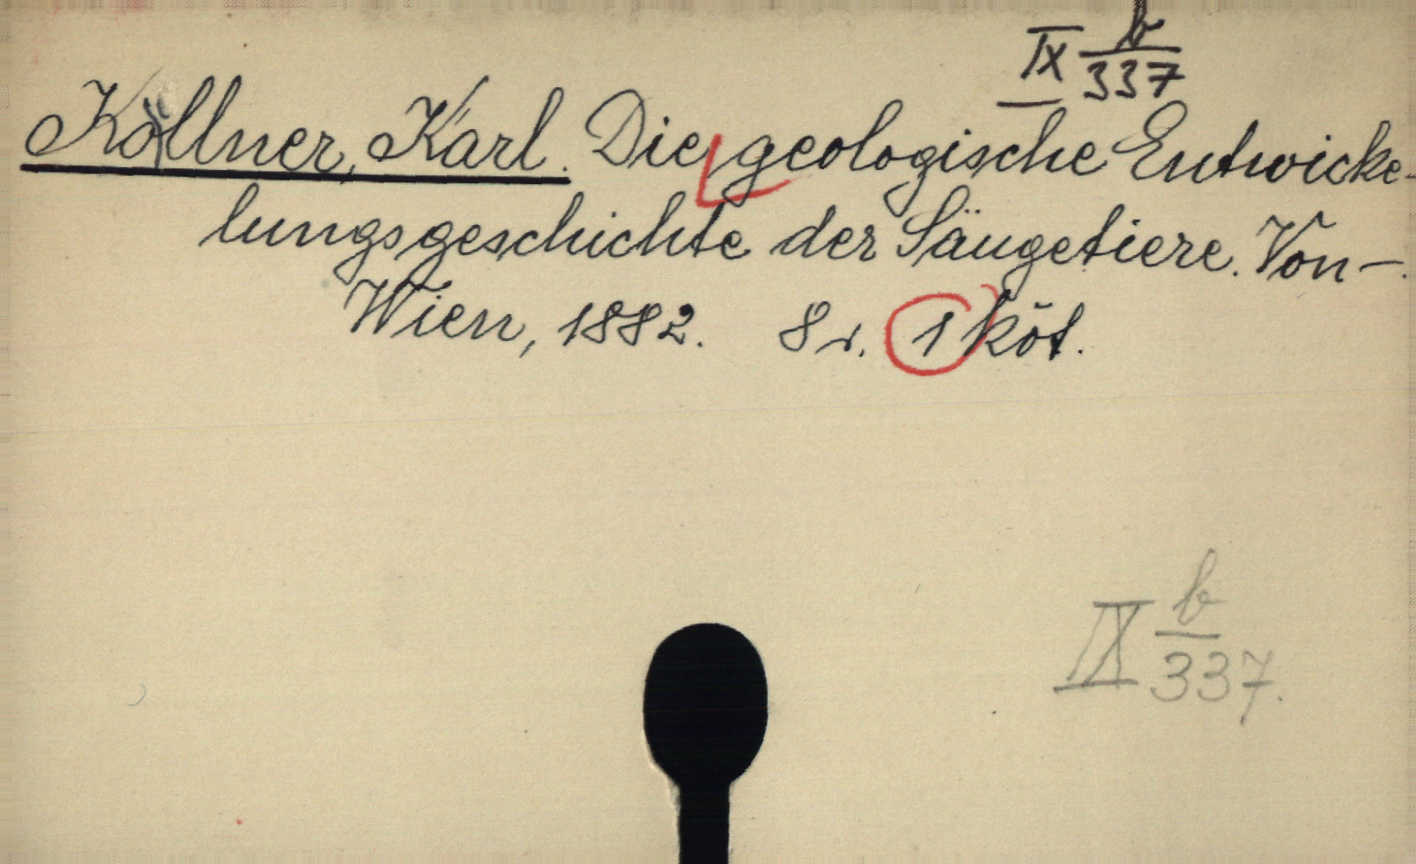 IX b/337
Köllner, Karl. Die geologische Entwicke-
lungsgeschichte der Säugetiere. Von –.
Wien, 1882. 8 r. 1 köt.
IX b/337.